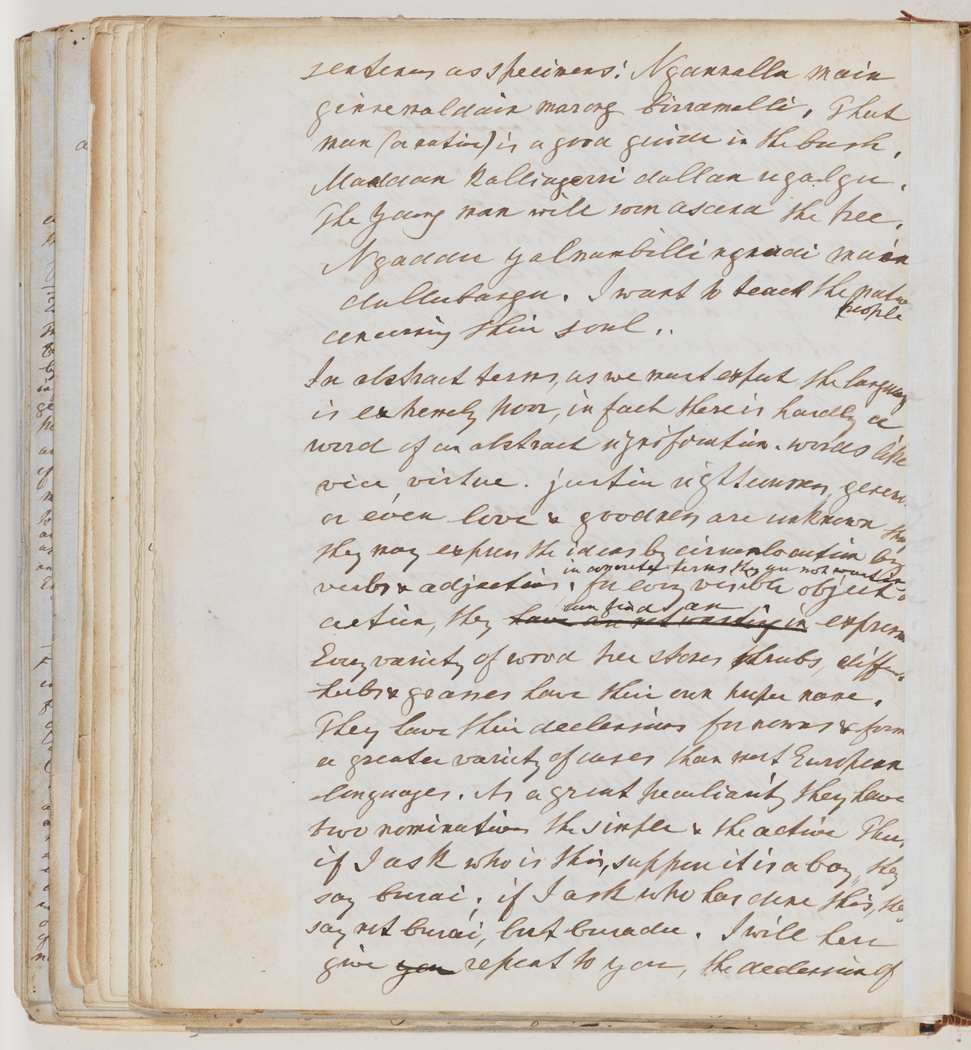 sentences as specimens: Ngannalla main
ginnemaldain marong birramalli, That
man (a native) is a good guide in the bush,
Maddan Kallingerri dallan ngalgu,
The Young man will soon ascend the tree,
Ngaddu yalmambilli main
dullubangu. I want to teach the native
people
concerning their soul..
In abstract terms, as we must expect the language
is extremely poor, in fact there is hardly a
word of an abstract signification. words like
vice, virtue. justice righteousness,
or even love & goodness are unknown tho
they may express the ideas by circumlocution by
in concrete terms they are not wanting
verbs & adjectives. for every visible object
can find an
action, they have are not wanting in express
Every variety of wood tree stones shrubs,
herbs & grasses have their own proper name.
They have their declensions for nouns & form
a greater variety of cases than most European
languages. As a great peculiarity they have
two nominatives the simple & the active Thus
if I ask who is this, suppose it is a boy, they
say burai; if I ask who has done this, the
say not burai, but buradu. I will here
give you repeat to you, the declension of